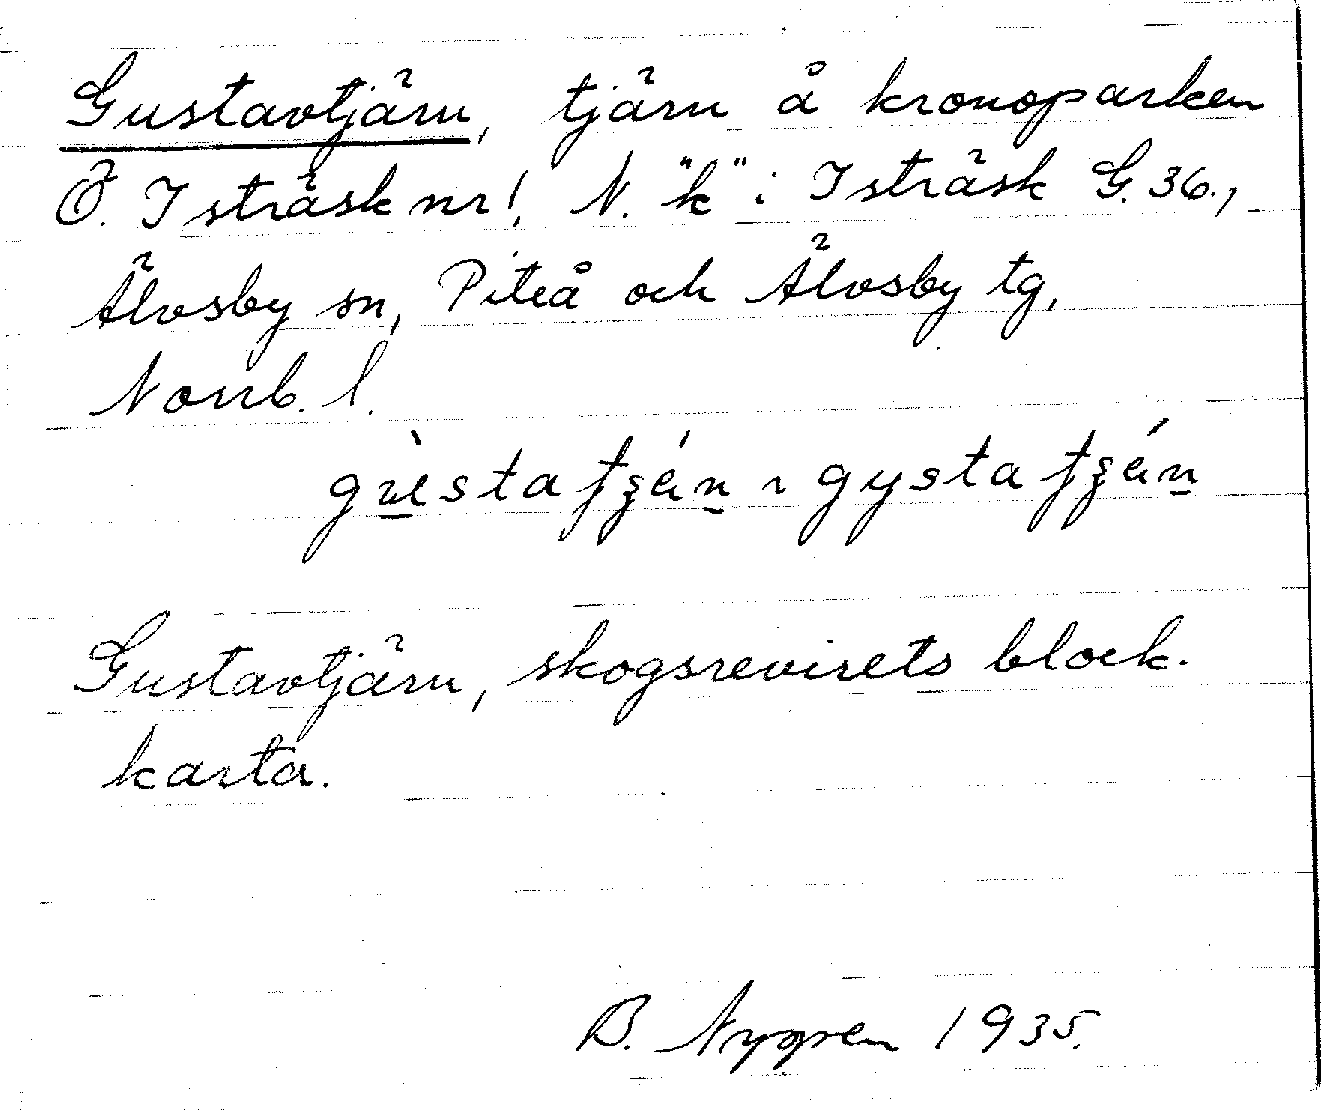 Gustavtjärn, tjärn å kronoparken
Ö. Isträsk nr 1, N. "k" i Isträsk G. 36.,
Älvsby sn, Piteå och Älvsby tg,
Norrb. l.
Gustavtjärn, skogsrevirets block-
karta.
B. Nygren 1935.